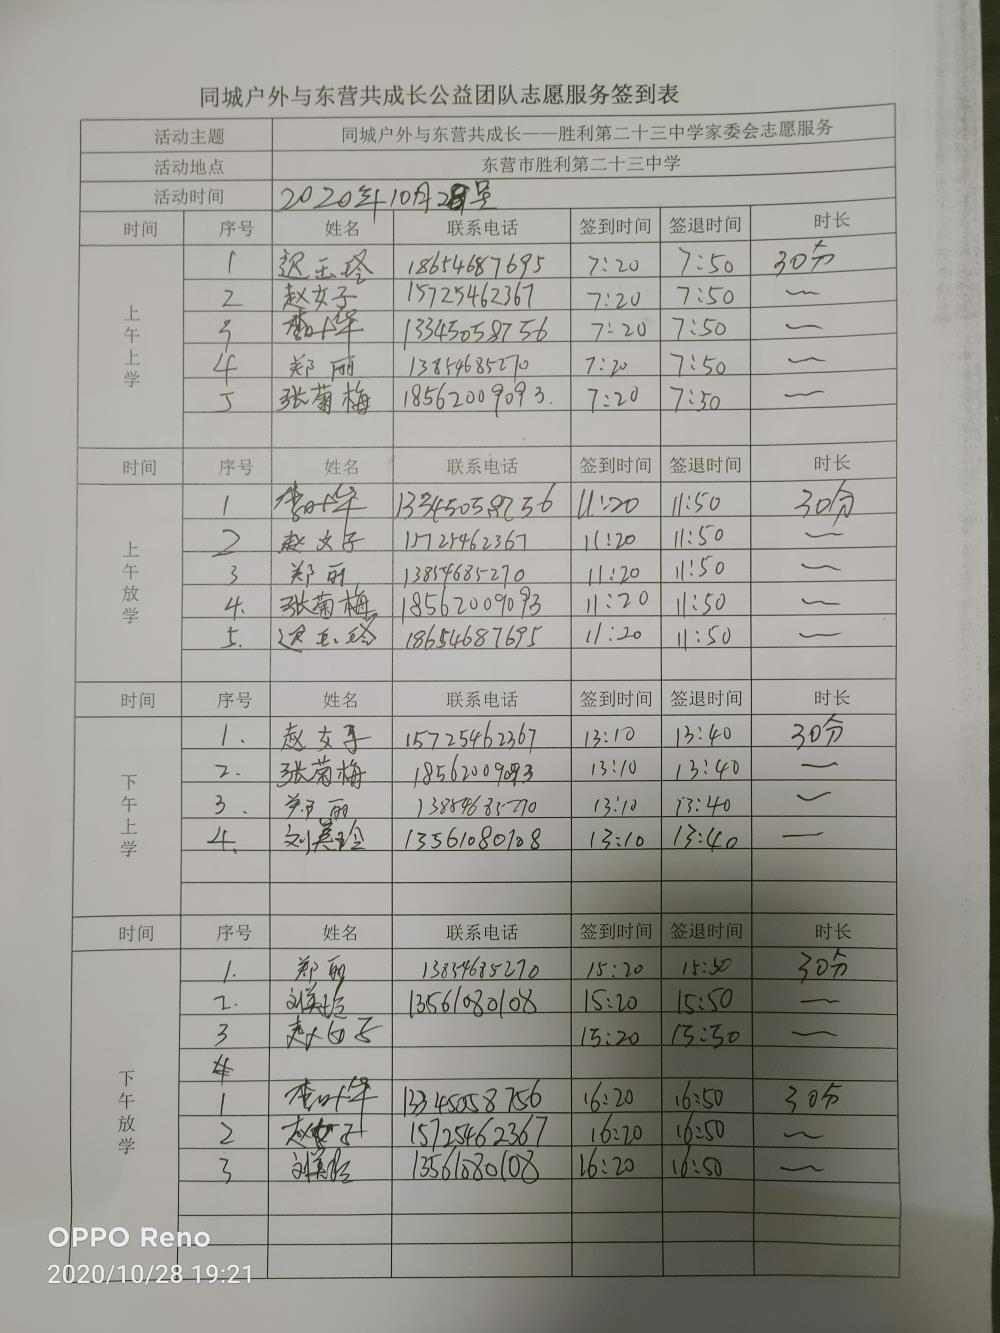 同城户外与东营共成长公益团队志愿服务签到表
活动主题 同城户外与东营共成长——胜利第二十三中学家委会志愿服务
活动地点 东营市胜利第二十三中学
活动时间 2020年10月28号
时间 序号 姓名 联系电话 签到时间 签退时间 时长
上午上学
1 迟玉玲 18654687695 7:20 7:50 30分
2 赵女子 15725462367 7:20 7:50 〜
3 13345058756 7:20 7:50 〜
4 郑丽 13854685270 7:20 7:50 〜
5 张菊梅 18562009093. 7:20 7:50 〜
时间 序号 姓名 联系电话 签到时间 签退时间 时长
上午放学
1 13345058756 11:20 11:50 30分
2 赵女子 15725462367 11:20 11:50 〜
3 郑丽 13854685270 11:20 11:50 〜
4. 张菊梅 18562009093 11:20 11:50 〜
5. 迟玉玲 18654687695 11:20 11:50 〜
时间 序号 姓名 联系电话 签到时间 签退时间 时长
下午上学
1. 赵女子 15725462367 13:10 13:40 30分
2. 张菊梅 18562009093 13:10 13:40 〜
3. 郑丽 13854685270 13:10 13:40 〜
4. 刘英玲 13561080108 13:10 13:40 —
时间 序号 姓名 联系电话 签到时间 签退时间 时长
下午放学
1. 郑丽 13854685270 15:20 15:50 30分
2. 刘英玲 13561080108 15:20 15:50 〜
3 赵女子 15:20 15:50 〜
4
1 13345058756 16:20 16:50 30分
2 赵女子 15725462367 16:20 16:50 〜
3 刘英玲 13561080108 16:20 16:50 〜
OPPO Reno
2020/10/28 19:21